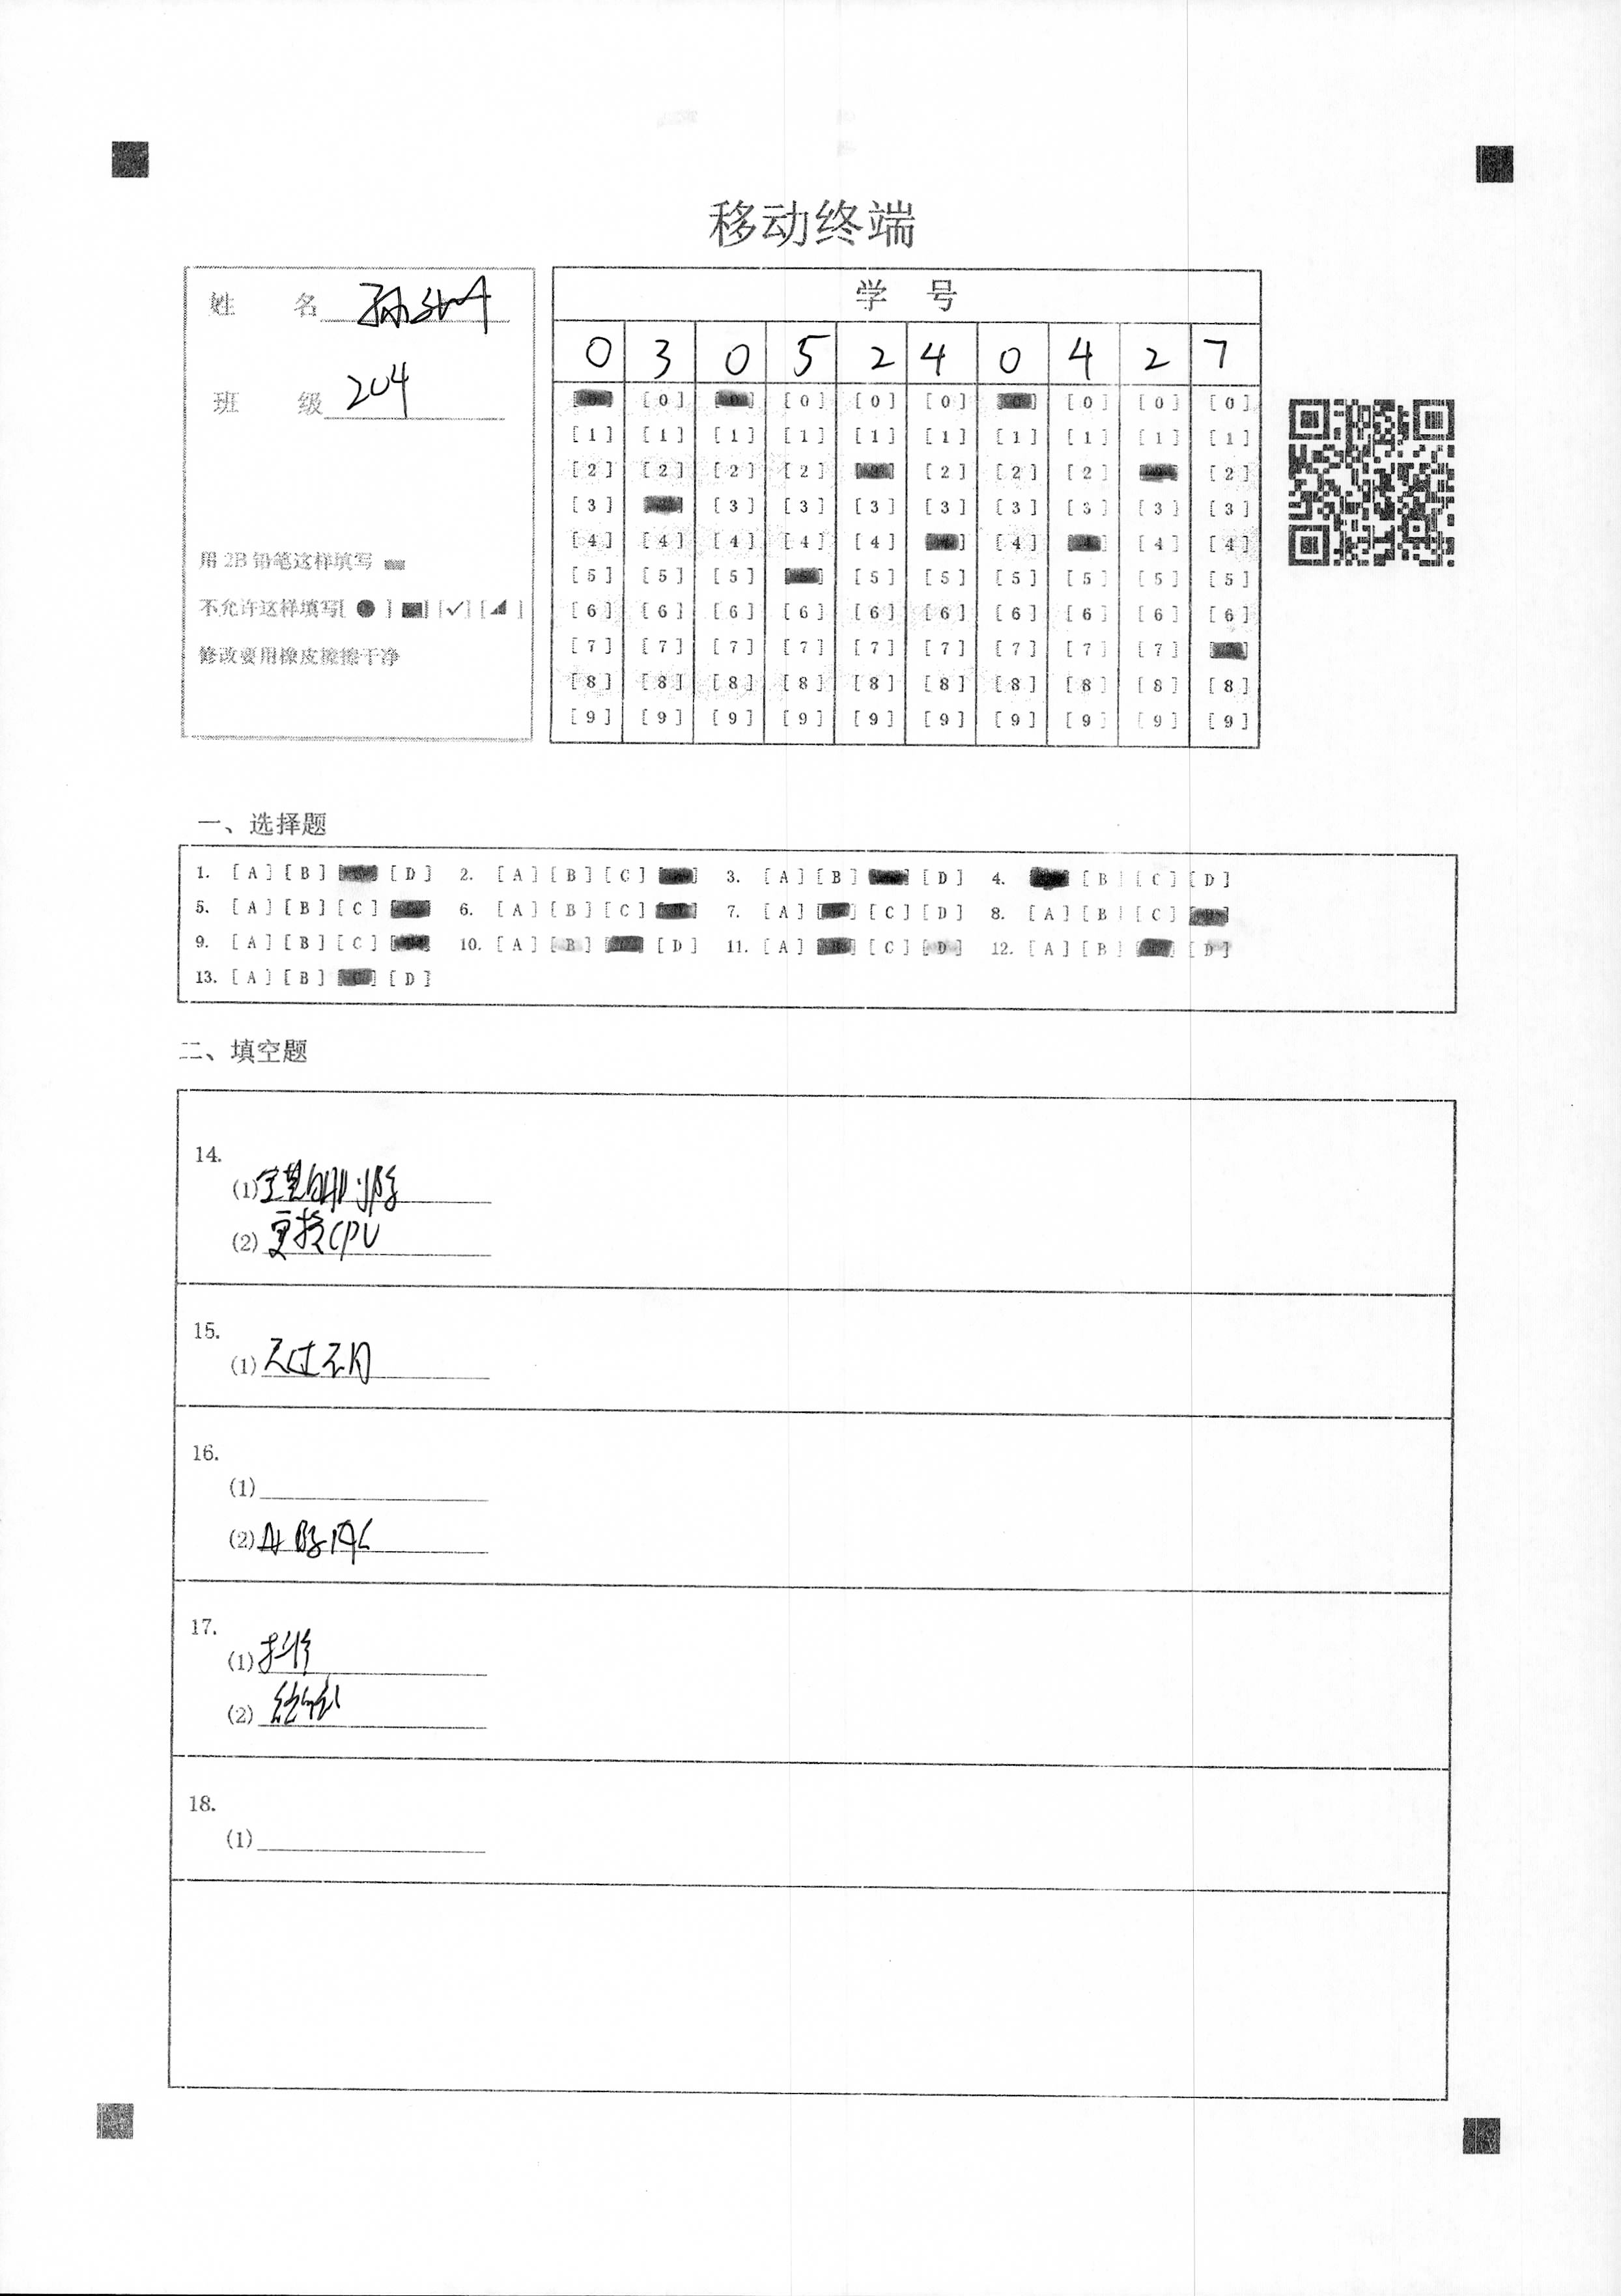 移动终端
姓 名 孙
班 级 204
用 2B 铅笔这样填写
不允许这样填写[ ● ] [■] [✓] [◢ ]
修改要用橡皮擦擦干净
学 号
0 3 0 5 2 4 0 4 2 7
[0] [0] [0] [0] [0] [0] [0]
[1] [1] [1] [1] [1] [1] [1] [1] [1] [1]
[2] [2] [2] [2] [2] [2] [2] [2]
[3] [3] [3] [3] [3] [3] [3] [3] [3]
[4] [4] [4] [4] [4] [4] [4] [4]
[5] [5] [5] [5] [5] [5] [5] [5] [5]
[6] [6] [6] [6] [6] [6] [6] [6] [6] [6]
[7] [7] [7] [7] [7] [7] [7] [7] [7]
[8] [8] [8] [8] [8] [8] [8] [8] [8] [8]
[9] [9] [9] [9] [9] [9] [9] [9] [9] [9]
一、选择题
1. [A] [B] [D] 2. [A] [B] [C] 3. [A] [B] [D] 4. [B] [C] [D]
5. [A] [B] [C] 6. [A] [B] [C] 7. [A] [C] [D] 8. [A] [B] [C]
9. [A] [B] [C] 10. [A] [B] [D] 11. [A] [C] [D] 12. [A] [B] [D]
13. [A] [B] [D]
二、填空题
14.
(1)
(2) 更换CPU
15.
(1)
16.
(1)
(2)
17.
(1)
(2)
18.
(1)